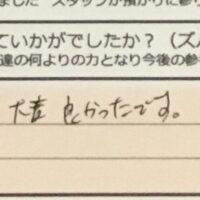 ました スタッフが預かりに参り
ていかがでしたか？（ズバ
達の何よりの力となり今後の参
大吉 良かったです。